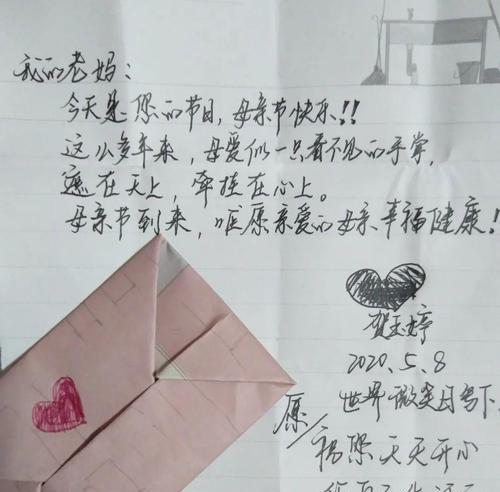 我的老妈：
今天是您的节日，母亲节快乐！！
这么多年来，母爱似一只看不见的手掌，
遮在天上，牵挂在心上。
母亲节到来，唯愿亲爱的母亲幸福健康！
贺玉婷
2020.5.8
世界微笑日写下
愿
祝您天天开心